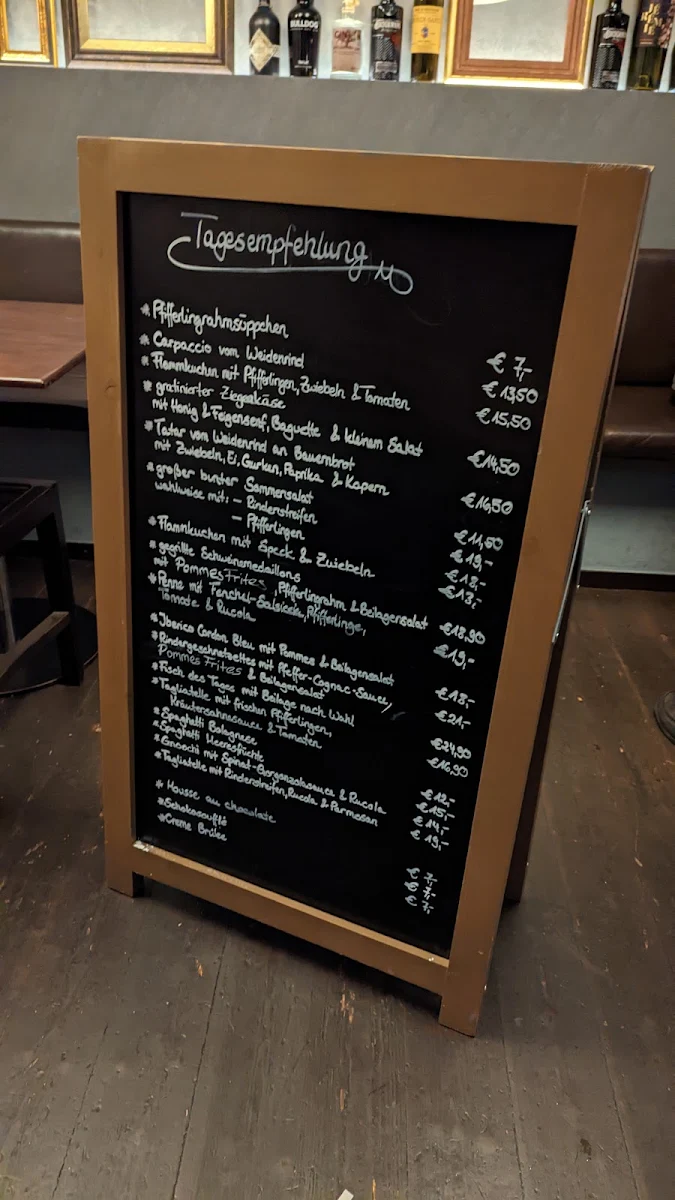 BULLDOG
Tagesempfehlung
* Pfifferlingrahmsüppchen € 7,-
* Carpaccio vom Weidenrind € 13,50
* Flammkuchen mit Pfifferlingen, Zwiebeln & Tomaten € 15,50
* gratinierter Ziegenkäse
mit Honig & Feigensenf, Baguette & kleinem Salat € 14,50
* Tatar vom Weidenrind an Bauernbrot
mit Zwiebeln, Ei, Gurken, Paprika & Kapern € 16,50
* großer bunter Sommersalat € 11,50
wahlweise mit: - Rinderstreifen € 19,-
- Pfifferlingen € 18,-
* Flammkuchen mit Speck & Zwiebeln € 13,-
* gegrillte Schweinemedaillons
mit Pommes Frites, Pfifferlingrahm & Beilagensalat € 18,90
* Penne mit Fenchel-Salsiccia, Pfifferlinge,
Tomade & Rucola € 19,-
* Iberico Cordon Bleu mit Pommes & Beilagensalat € 18,-
* Rindergeschnetzeltes mit Pfeffer-Cognac-Sauce,
Pommes Frites & Beilagensalat € 21,-
* Fisch des Tages mit Beilage nach Wahl € 24,90
* Tagliatelle mit frischen Pfifferlingen,
Kräutersahnesauce & Tomaten € 16,90
* Spaghetti Bolognese € 12,-
* Spaghetti Meeresfrüchte € 15,-
* Gnocchi mit Spinat-Gorgonzolasauce & Rucola € 14,-
* Tagliatelle mit Rinderstreifen, Rucola & Parmesan € 19,-
* Mousse au chocolate € 7,-
* Schokosoufflé € 7,-
* Creme Brûlée € 7,-